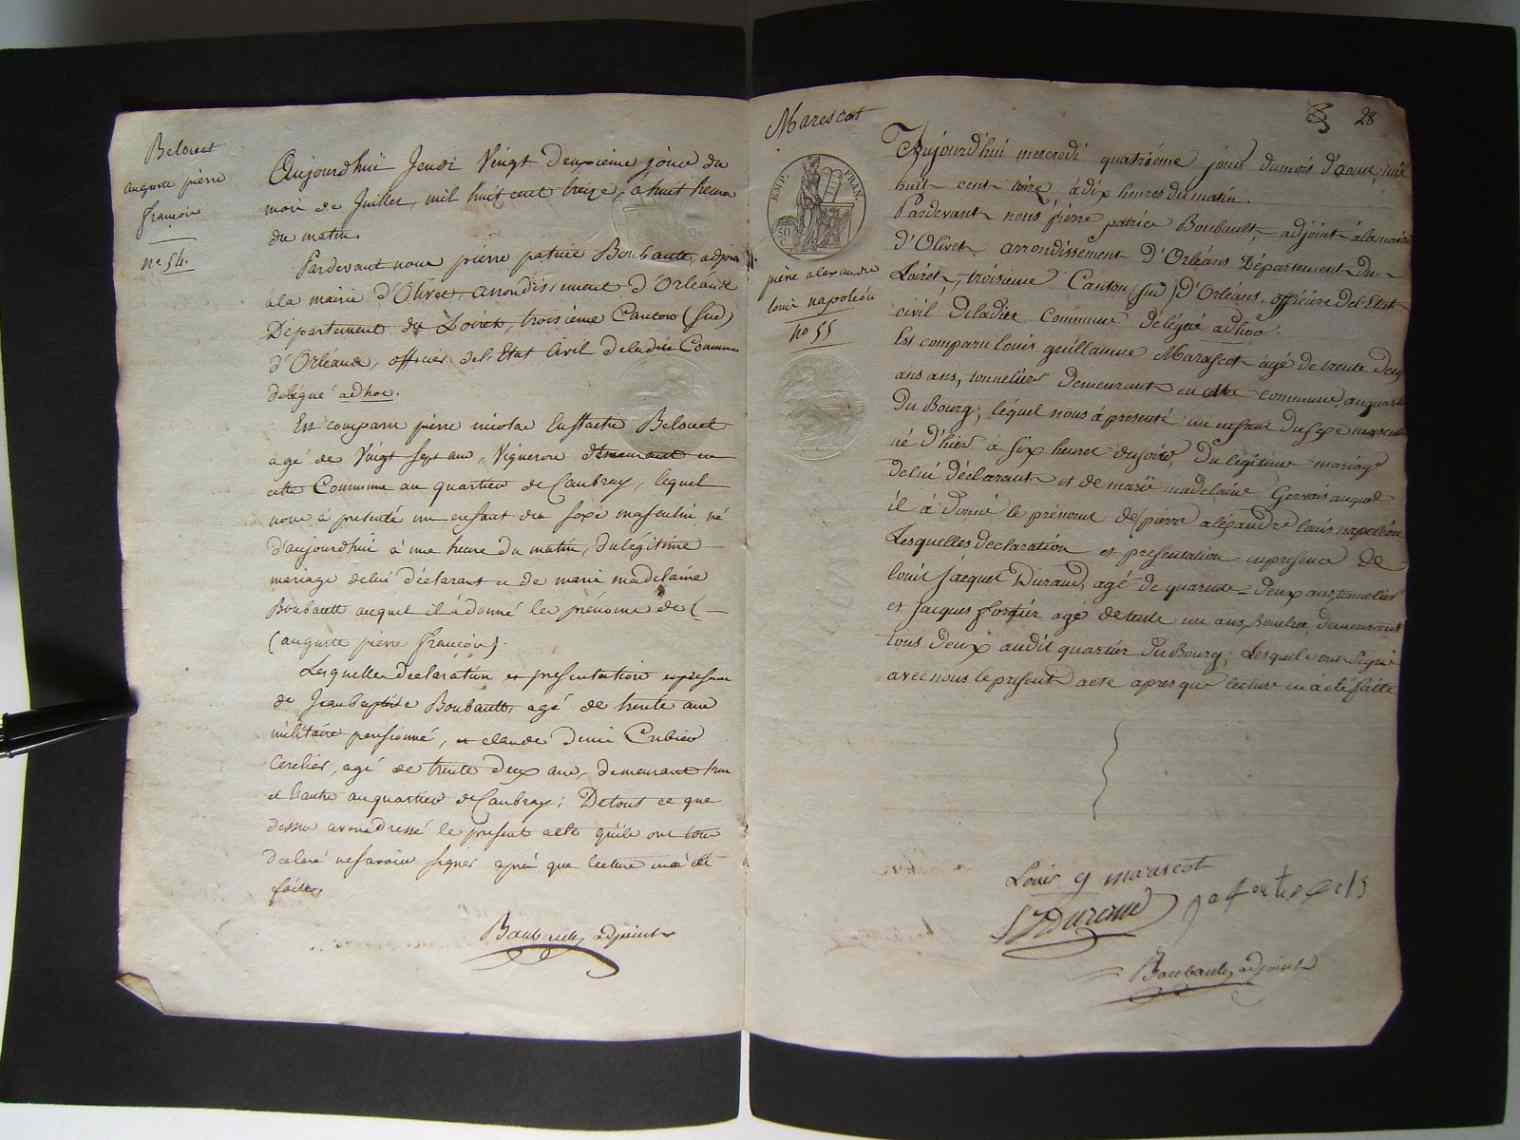 Belouet
auguste pierre
françois
nº 54.
Aujourd'hui Jeudi Vingt Deuxième jour du
mois de Juillet, mil huit cent treize, à huit heures
du matin.
Pardevant nous pierre patrice Boubault, adjoint
à la mairie d'Olivet, arrondissement d'Orléans
Département du Loiret, troisième Canton (sud)
d'Orléans, officier de l'Etat Civil de ladite Commune
délégué adhoc.
Est comparu pierre nicolas Eustache Belouet
agé de Vingt sept ans, Vigneron demeurant en
cette Commune au quartier de Caubray, lequel
nous à presenté un enfant du sexe masculin né
d'aujourd'hui à une heure du matin, du légitime
mariage de lui déclarant et de marie madelaine
Boubault auquel il à donné les prénoms de (
(auguste pierre françois).
Lesquelles declaration et presentation en presence
de Jean baptiste Boubault, agé de trente ans
militaire pensionné, et claude denis
cerclier, agé de trente deux ans, demeurant l'un
et l'autre au quartier de Caubray; De tout ce que
dessus avons dressé le present acte qu'ils ont tous
déclaré ne savoir signer après que lecture en à été
faite,
Boubault adjoint
28
Marescot
EMP. FRAN.
50
pierre alexandre
louis napoléon
nº 55
Aujourd'hui mercredi quatrième jour du mois d'aout, mil
huit cent treize, à dix heures du matin.
Pardevant nous pierre patrice Boubault, adjoint à la mairie
d'Olivet arrondissement d'Orléans Département du
Loiret, troisieme Canton (sud) d'Orléans, officier de l'Etat
civil de ladite Commune délégué adhoc.
Est comparu louis guillaume Marascot agé de trente deux
ans ans, tonnelier demeurant en cette commune, au quartier
du Bourg, lequel nous à presenté un enfant du sexe masculin
né d'hier à six heures du soir, du légitime mariage
de lui déclarant et de marie madelaine Gervais auquel
il à donné le prénoms de (pierre aléxandre louis napoléon,
Lesquelles declaration et presentation en presence de
louis Jacques Durand, agé de quarante deux ans, tonnelier
et Jacques fortier agé de trente un ans, demeurant
tous deux audit quartier du Bourg; Lesquels ont signé
avec nous le present acte apres que lecture en à été faite
Louis g mariscot
LJ Durand
Boubault, adjoint